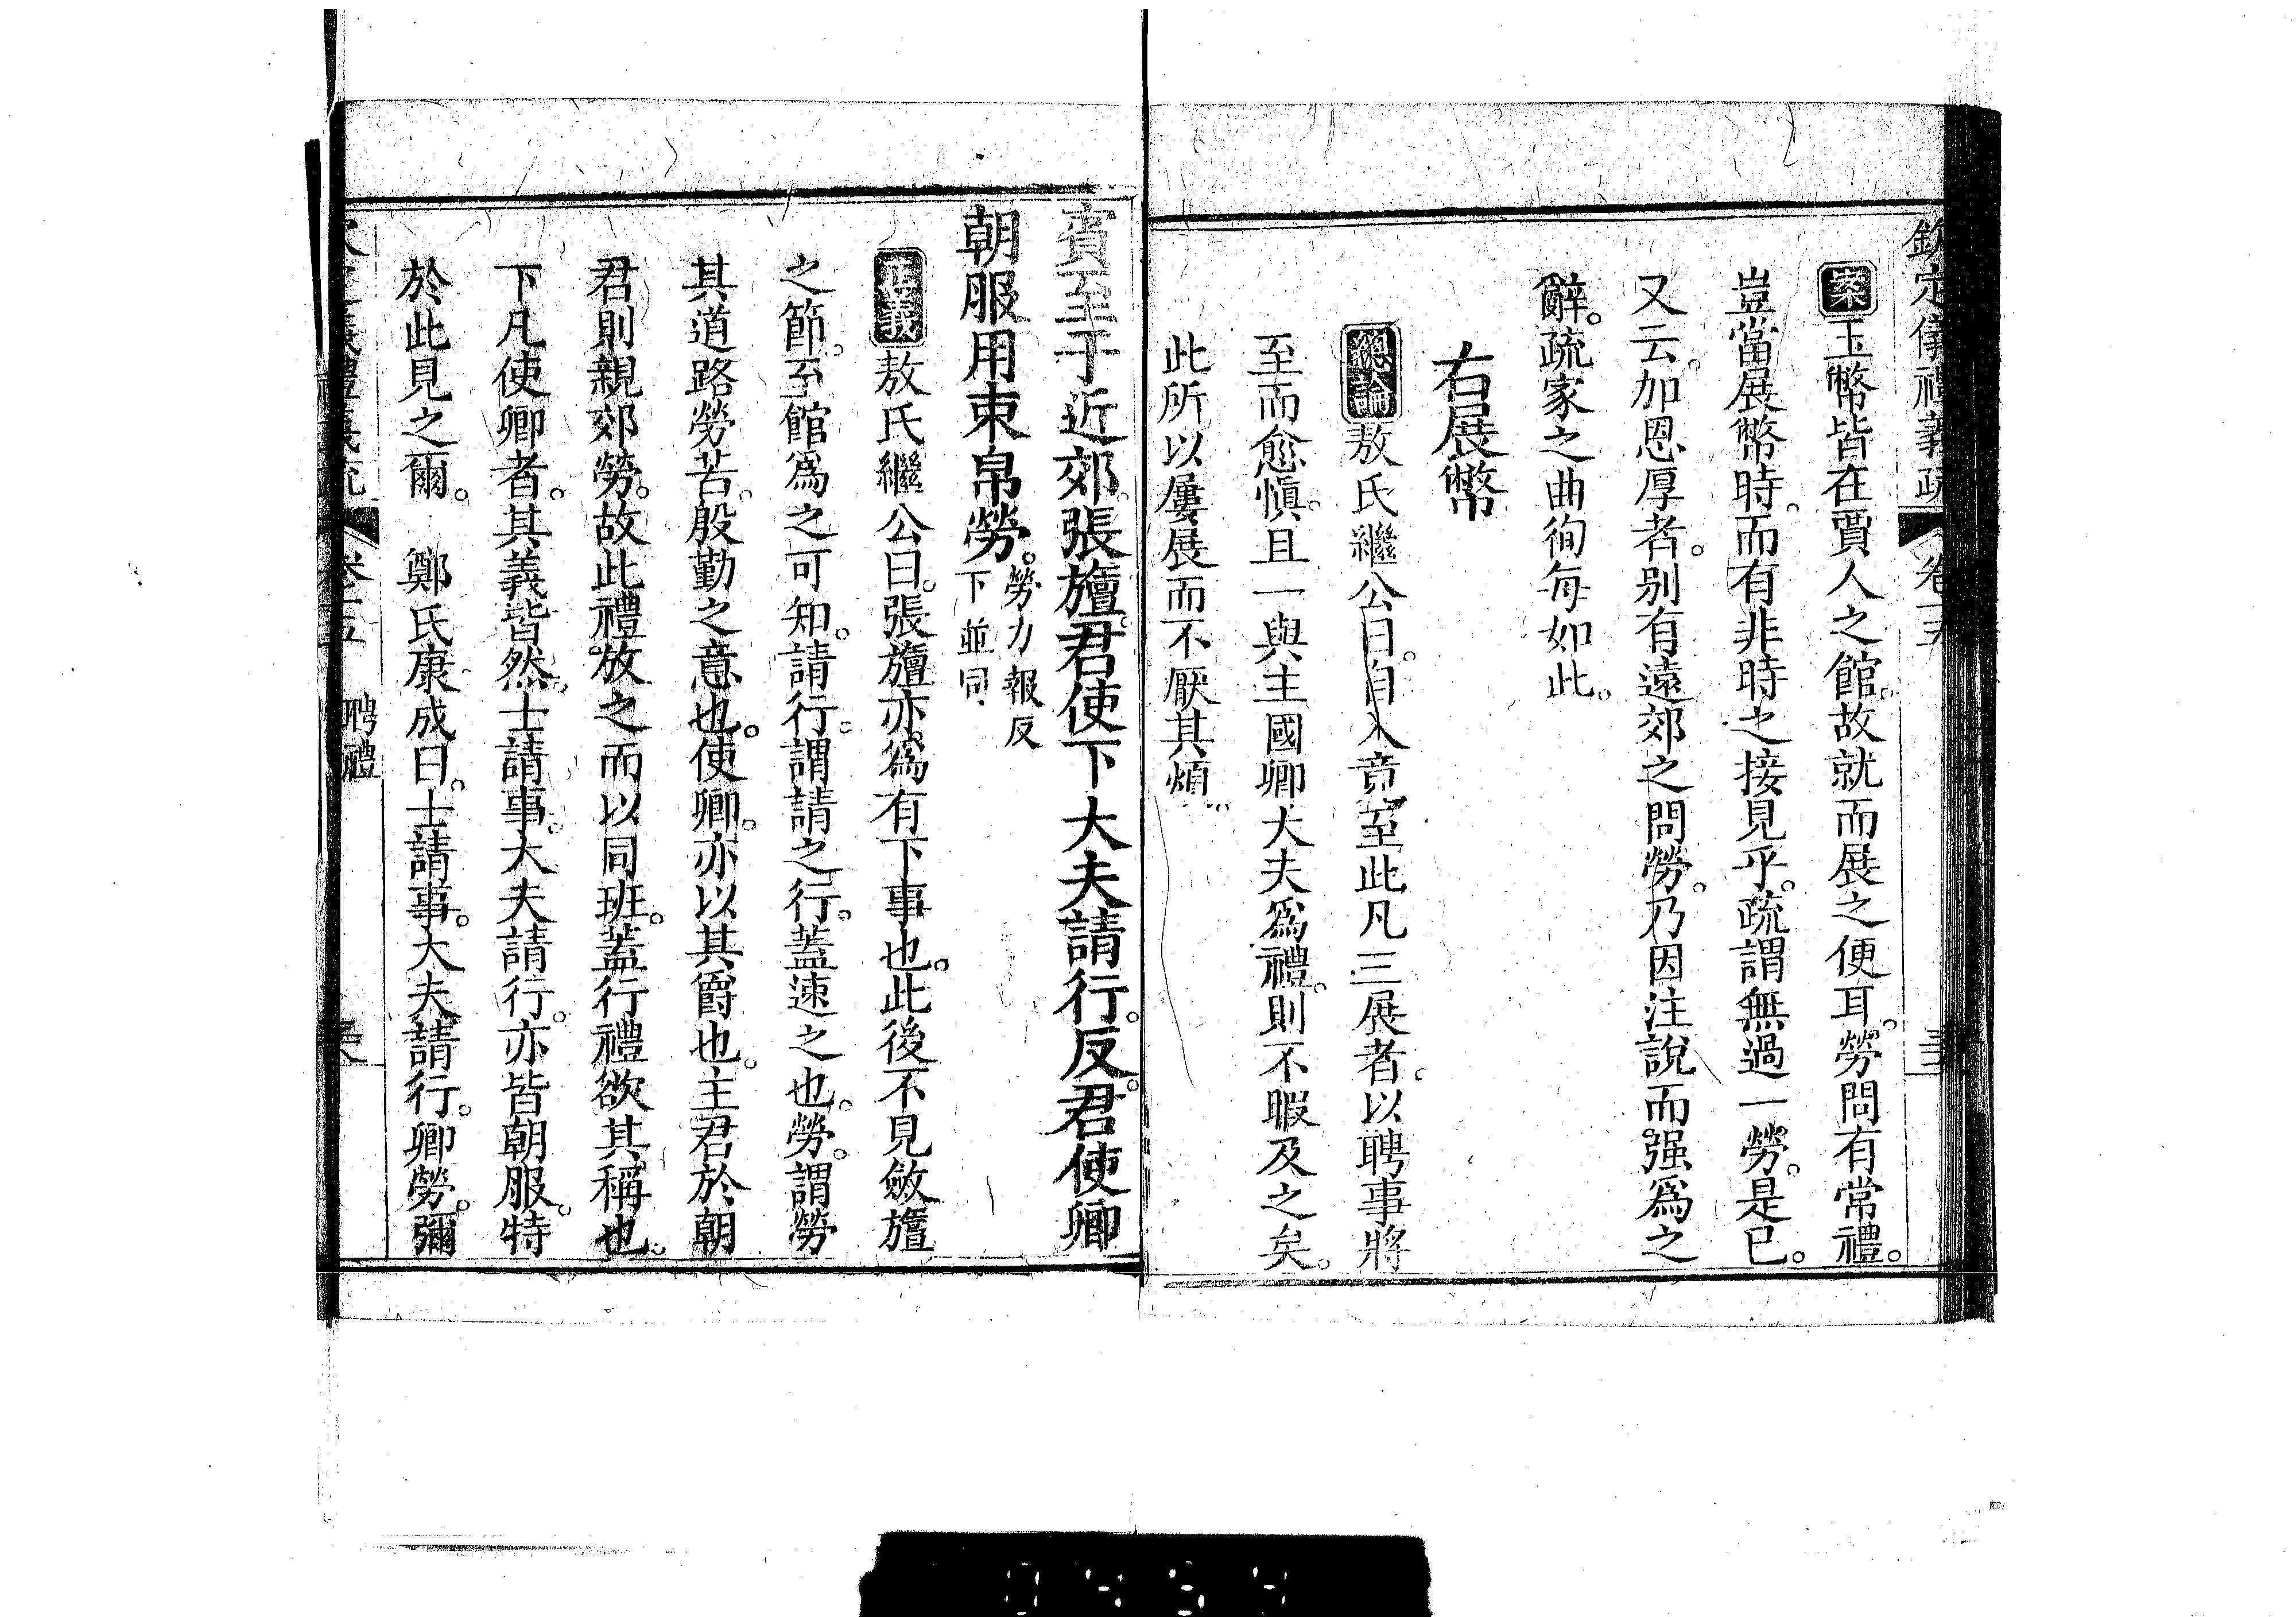 欽定儀禮義疏 卷十五
案玉幣皆在賈人之館故就而展之便耳。勞問有常禮。
豈當展幣時。而有非時之接見乎。疏謂無過一勞。是已。
又云。加恩厚者。別有遠郊之問勞。乃因注說而强爲之
辭。疏家之曲徇每如此。
右展幣
總論敖氏繼公曰。自入竟至此凡三展者。以聘事將
至而愈慎。且一與主國卿大夫爲禮。則不暇及之矣。
此所以屢展而不厭其煩。
賓至于近郊。張旜。君使下大夫請行。反。君使卿
朝服用束帛勞。勞力報反下並同
正義敖氏繼公曰。張旜亦爲有下事也。此後不見斂旜
之節。至館爲之可知。請行。謂請之行。蓋速之也。勞。謂勞
其道路勞苦。殷勤之意也。使卿。亦以其爵也。主君於朝
君則親郊勞。故此禮放之而以同班。蓋行禮欲其稱也。
下凡使卿者。其義皆然。士請事。大夫請行。亦皆朝服。特
於此見之爾。 鄭氏康成曰。士請事。大夫請行。卿勞。彌
聘禮